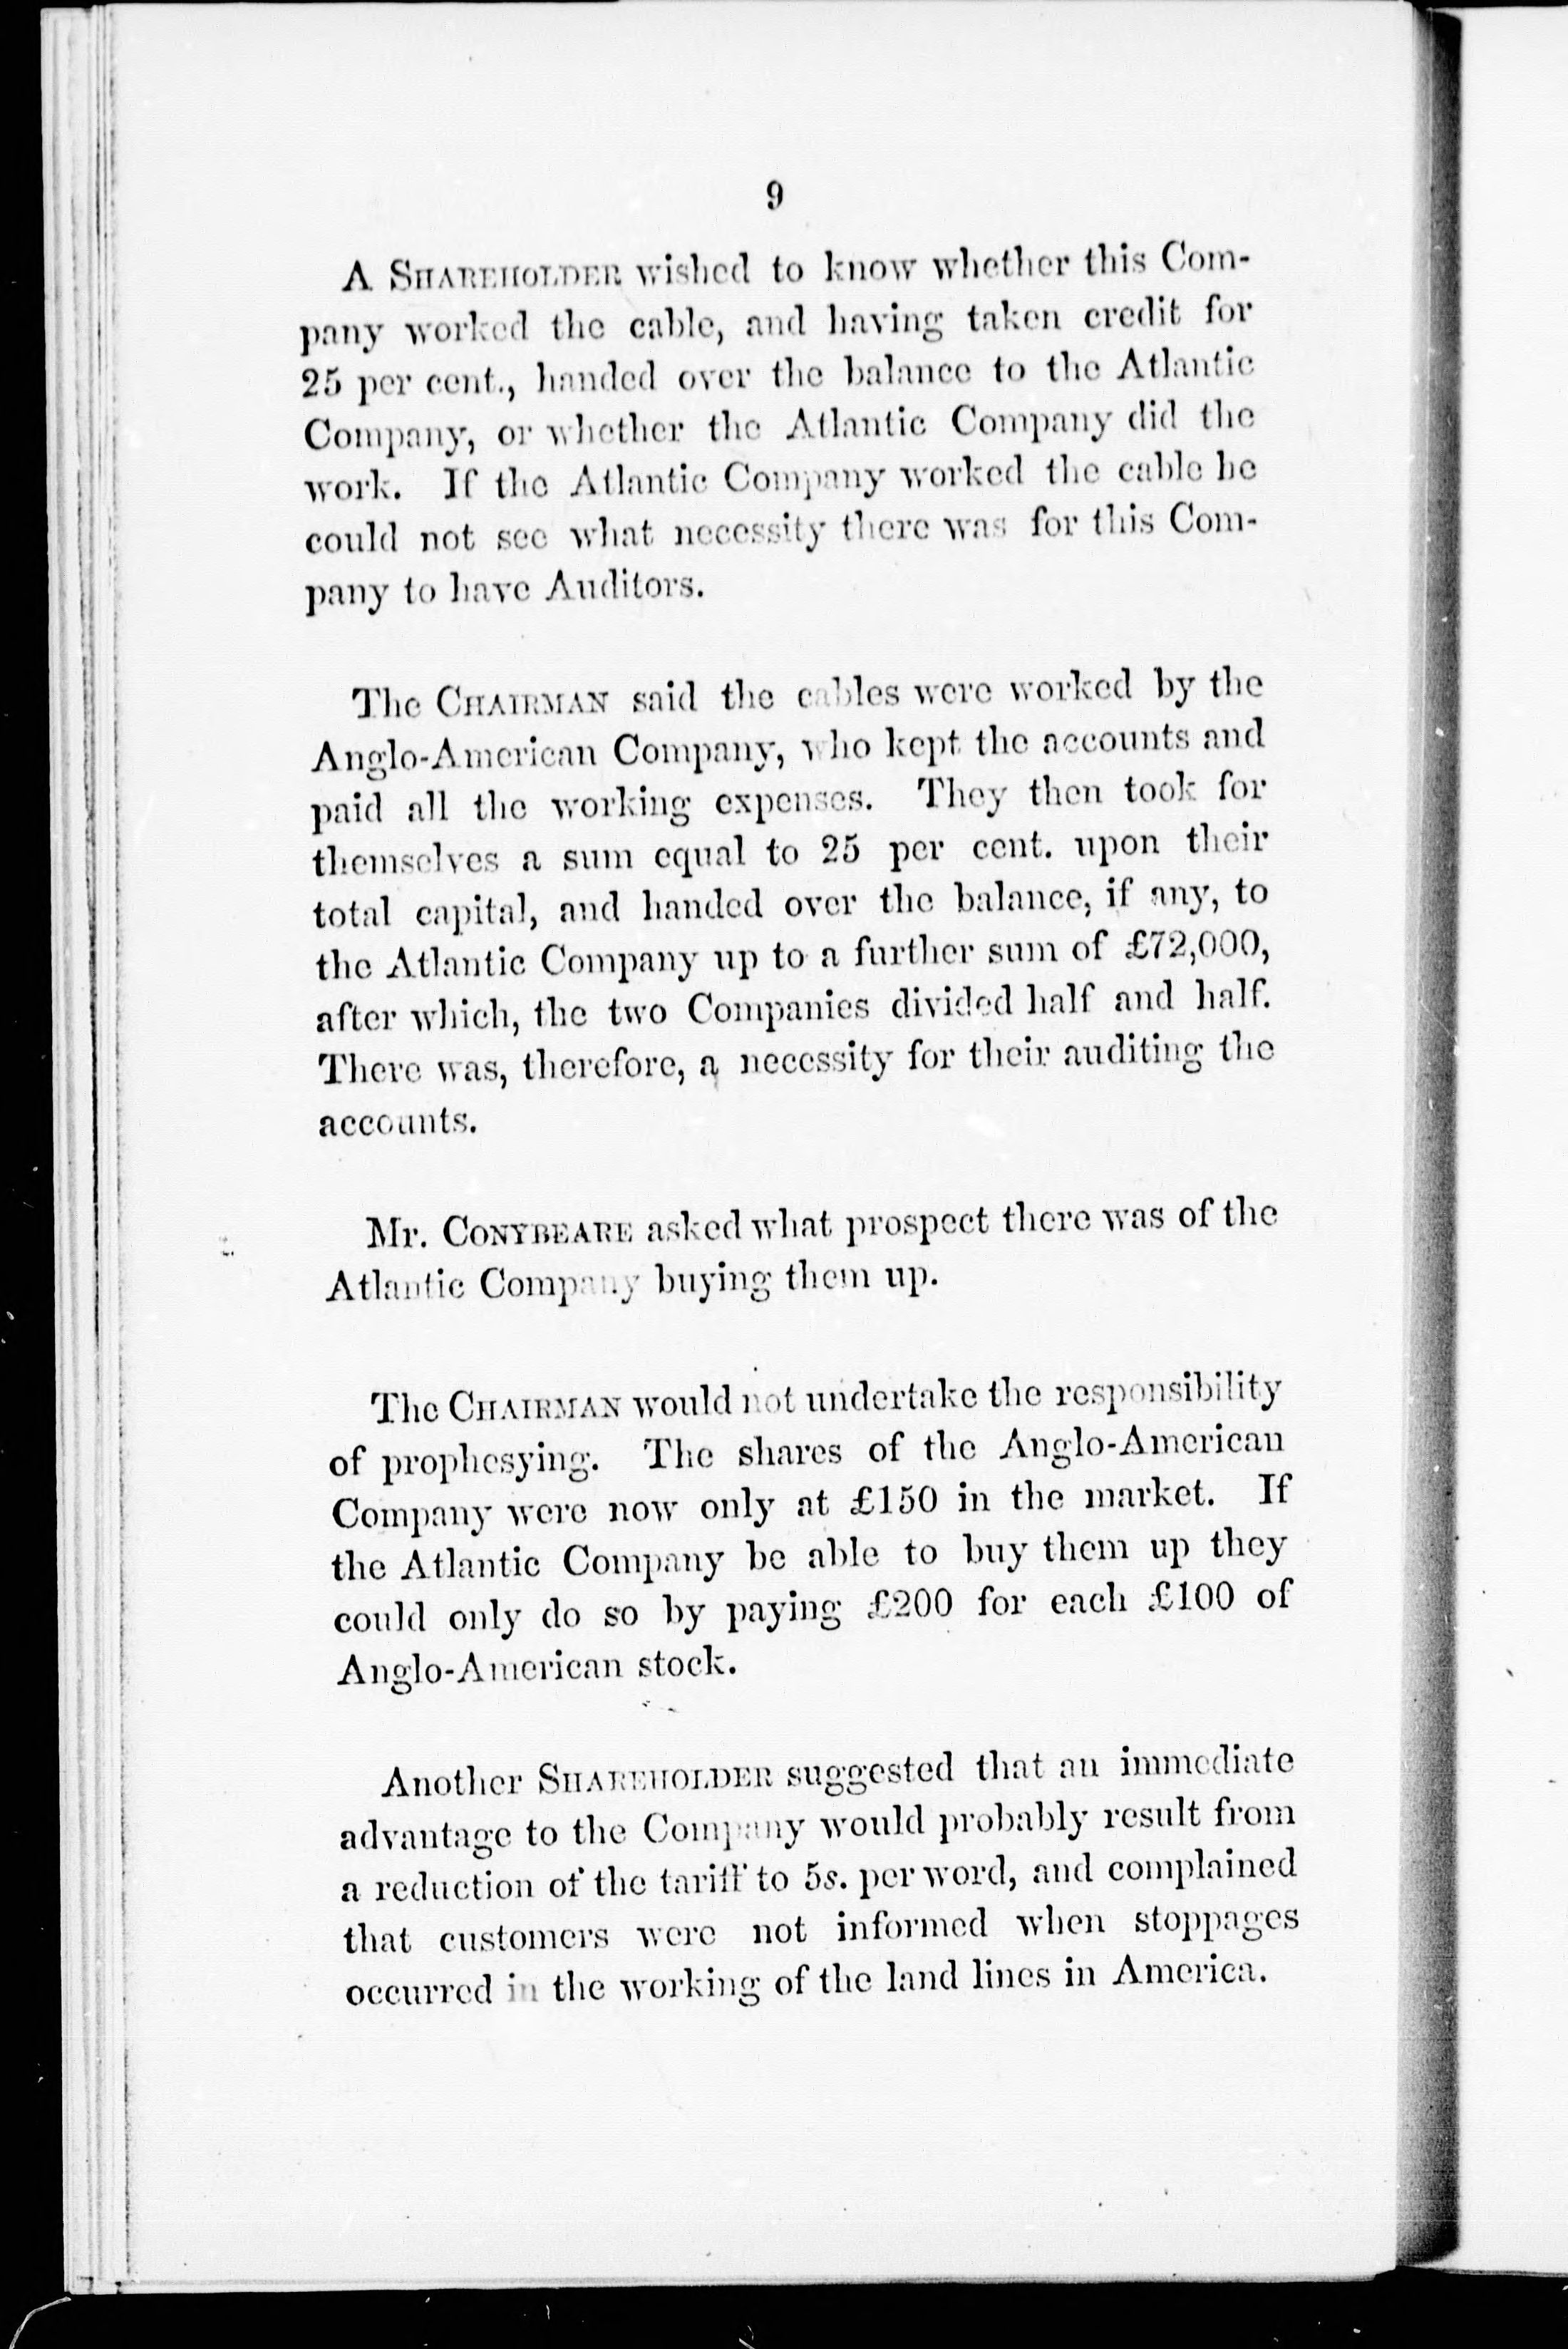 9
A SHAREHOLDER wished to know whether this Com-
pany worked the cable, and having taken credit for
25 per cent., handed over the balance to the Atlantic
Company, or whether the Atlantic Company did the
work. If the Atlantic Company worked the cable he
could not see what necessity there was for this Com-
pany to have Auditors.
The CHAIRMAN said the cables were worked by the
Anglo-American Company, who kept the accounts and
paid all the working expenses. They then took for
themselves a sum equal to 25 per cent. upon their
total capital, and handed over the balance, if any, to
the Atlantic Company up to a further sum of £72,000,
after which, the two Companies divided half and half.
There was, therefore, a necessity for their auditing the
accounts.
Mr. CONYBEARE asked what prospect there was of the
Atlantic Company buying them up.
The CHAIRMAN would not undertake the responsibility
of prophesying. The shares of the Anglo-American
Company were now only at £150 in the market. If
the Atlantic Company be able to buy them up they
could only do so by paying £200 for each £100 of
Anglo-American stock.
Another SHAREHOLDER suggested that an immediate
advantage to the Company would probably result from
a reduction of the tariff to 5s. per word, and complained
that customers were not informed when stoppages
occurred in the working of the land lines in America.